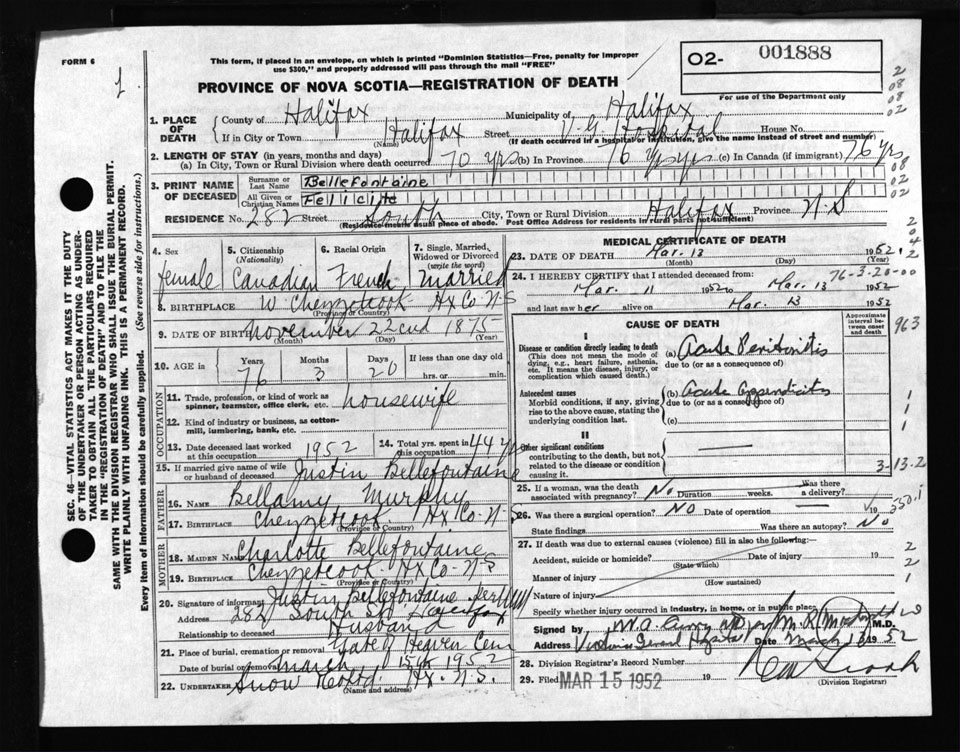 FORM 6
1
This form, if placed in an envelope, on which is printed "Dominion Statistics—Free, penalty for improper
use $300," and properly addressed will pass through the mail "FREE"
PROVINCE OF NOVA SCOTIA—REGISTRATION OF DEATH
O2- 001888
For use of the Department only
2
08
08
02
1. PLACE OF DEATH
County of Halifax Municipality of Halifax
If in City or Town Halifax Street V. G. Hospital House No.
(Name) (If death occurred in a hospital or institution, give the name instead of street and number)
2. LENGTH OF STAY (in years, months and days)
(a) In City, Town or Rural Division where death occurred 70 yrs (b) In Province 76 yrs (c) In Canada (if immigrant) 76 yrs
3. PRINT NAME OF DECEASED
Surname or Last Name Bellefontaine
All Given or Christian Names Felicite
08
02
02
RESIDENCE No. 282 Street South City, Town or Rural Division Halifax Province N.S
(Residence means usual place of abode. Post Office Address for residents in rural parts not sufficient)
4. Sex
female
5. Citizenship
(Nationality)
Canadian
6. Racial Origin
French
7. Single, Married, Widowed or Divorced
(write the word)
married
8. BIRTHPLACE W. Chezzetcook Hx Co N-S
(Province or Country)
9. DATE OF BIRTH November 22nd 1875
(Month) (Day) (Year)
10. AGE in
Years 76
Months 3
Days 20
If less than one day old
hrs. or min.
OCCUPATION
11. Trade, profession, or kind of work as spinner, teamster, office clerk, etc. housewife
12. Kind of industry or business, as cotton-mill, lumbering, bank, etc.
13. Date deceased last worked at this occupation 1952
14. Total yrs. spent in this occupation 44 yrs
15. If married give name of wife or husband of deceased Justin Bellefontaine
FATHER
16. NAME Bellamy Murphy
17. BIRTHPLACE Chezzetcook Hx Co-N-S
(Province or Country)
MOTHER
18. MAIDEN NAME Charlotte Bellefontaine
19. BIRTHPLACE Chezzetcook Hx Co-N-S
(Province or Country)
20. Signature of informant Justin Bellefontaine
Address 282 South St Halifax
Relationship to deceased Husband
21. Place of burial, cremation or removal Gate of Heaven Cem
Date of burial or removal March 15th 1952
22. UNDERTAKER Snow & Co Ltd. Hx. N.S.
(Name and address)
MEDICAL CERTIFICATE OF DEATH
23. DATE OF DEATH Mar. 13 1952
(Month) (Day)
24. I HEREBY CERTIFY that I attended deceased from 76-3-20-00
Mar. 11 1952 to Mar. 13 1952
and last saw her alive on Mar. 13 1952
CAUSE OF DEATH
Approximate interval between onset and death
963
I
Disease or condition directly leading to death
(This does not mean the mode of dying, e.g., heart failure, asthenia, etc. It means the disease, injury, or complication which caused death.)
(a) Acute Peritonitis
due to (or as a consequence of)
Antecedent causes
Morbid conditions, if any, giving rise to the above cause, stating the underlying condition last.
(b) Acute appendicitis
due to (or as a consequence of)
(c)
II
Other significant conditions
contributing to the death, but not related to the disease or condition causing it.
3-13-2
25. If a woman, was the death associated with pregnancy? No Duration weeks. Was there a delivery?
26. Was there a surgical operation? NO Date of operation 19
State findings Was there an autopsy? No
550.1
27. If death was due to external causes (violence) fill in also the following:—
Accident, suicide or homicide? Date of injury 19
(State which)
Manner of injury
(How sustained)
Nature of injury
2
2
1
Specify whether injury occurred in industry, in home, or in public place
Signed by M.D.
Address Victoria General Hospital Date March 13 1952
28. Division Registrar's Record Number
29. Filed MAR 15 1952 19
(Division Registrar)
SEC. 46—VITAL STATISTICS ACT MAKES IT THE DUTY
OF THE UNDERTAKER OR PERSON ACTING AS UNDER-
TAKER TO OBTAIN ALL THE PARTICULARS REQUIRED
IN THE "REGISTRATION OF DEATH" AND TO FILE THE
SAME WITH THE DIVISION REGISTRAR WHO SHALL ISSUE THE BURIAL PERMIT.
WRITE PLAINLY WITH UNFADING INK. THIS IS A PERMANENT RECORD.
Every item of Information should be carefully supplied. (See reverse side for instructions.)